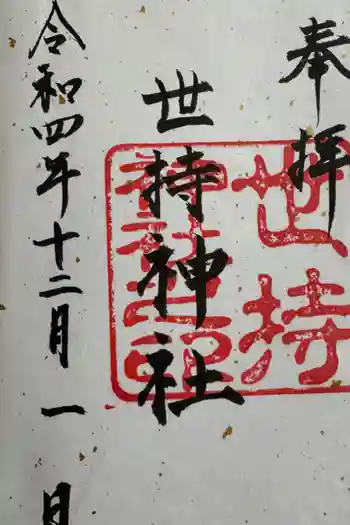 奉拝
世持神社
世持
神社之印
令和四年十二月一日